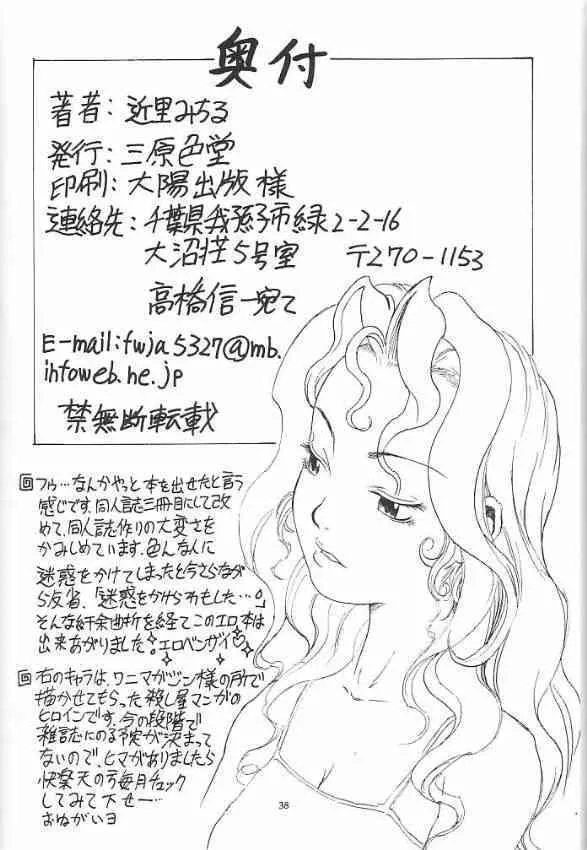 奥付
著者：近里みちる
発行：三原色堂
印刷：大陽出版様
連絡先：千葉県我孫子市緑2-2-16
大沼荘5号室 〒270-1153
高橋信一宛て
E-mail:fwja5327@mb.
infoweb.ne.jp
禁無断転載
回フゥ…なんかやっと本を出せたと言う
感じです。同人誌三冊目にして改
めて、同人誌作りの大変さを
かみしめています。色んな人に
迷惑をかけてしまったと今さらなが
ら反省、「迷惑をかけられもした…。」
そんな紆余曲折を経てこのエロ本は
出来あがりました。エロベンザイ♡
回右のキャラは、ワニマガジン様の所で
描かせてもらった殺し屋マンガの
ヒロインです。今の段階で
雑誌にのる予定が決まって
ないので、ヒマがありましたら
快楽天の方毎月チェック
してみて下せー…
おねがいヨ
38